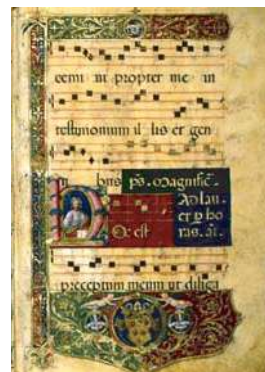 cemini propter me in
testimonium il lis et gen
ti bus ps. Magnific̄.
Ad lau.
et p ho
ras. añ.
Hoc est
preceptum meum ut diliga